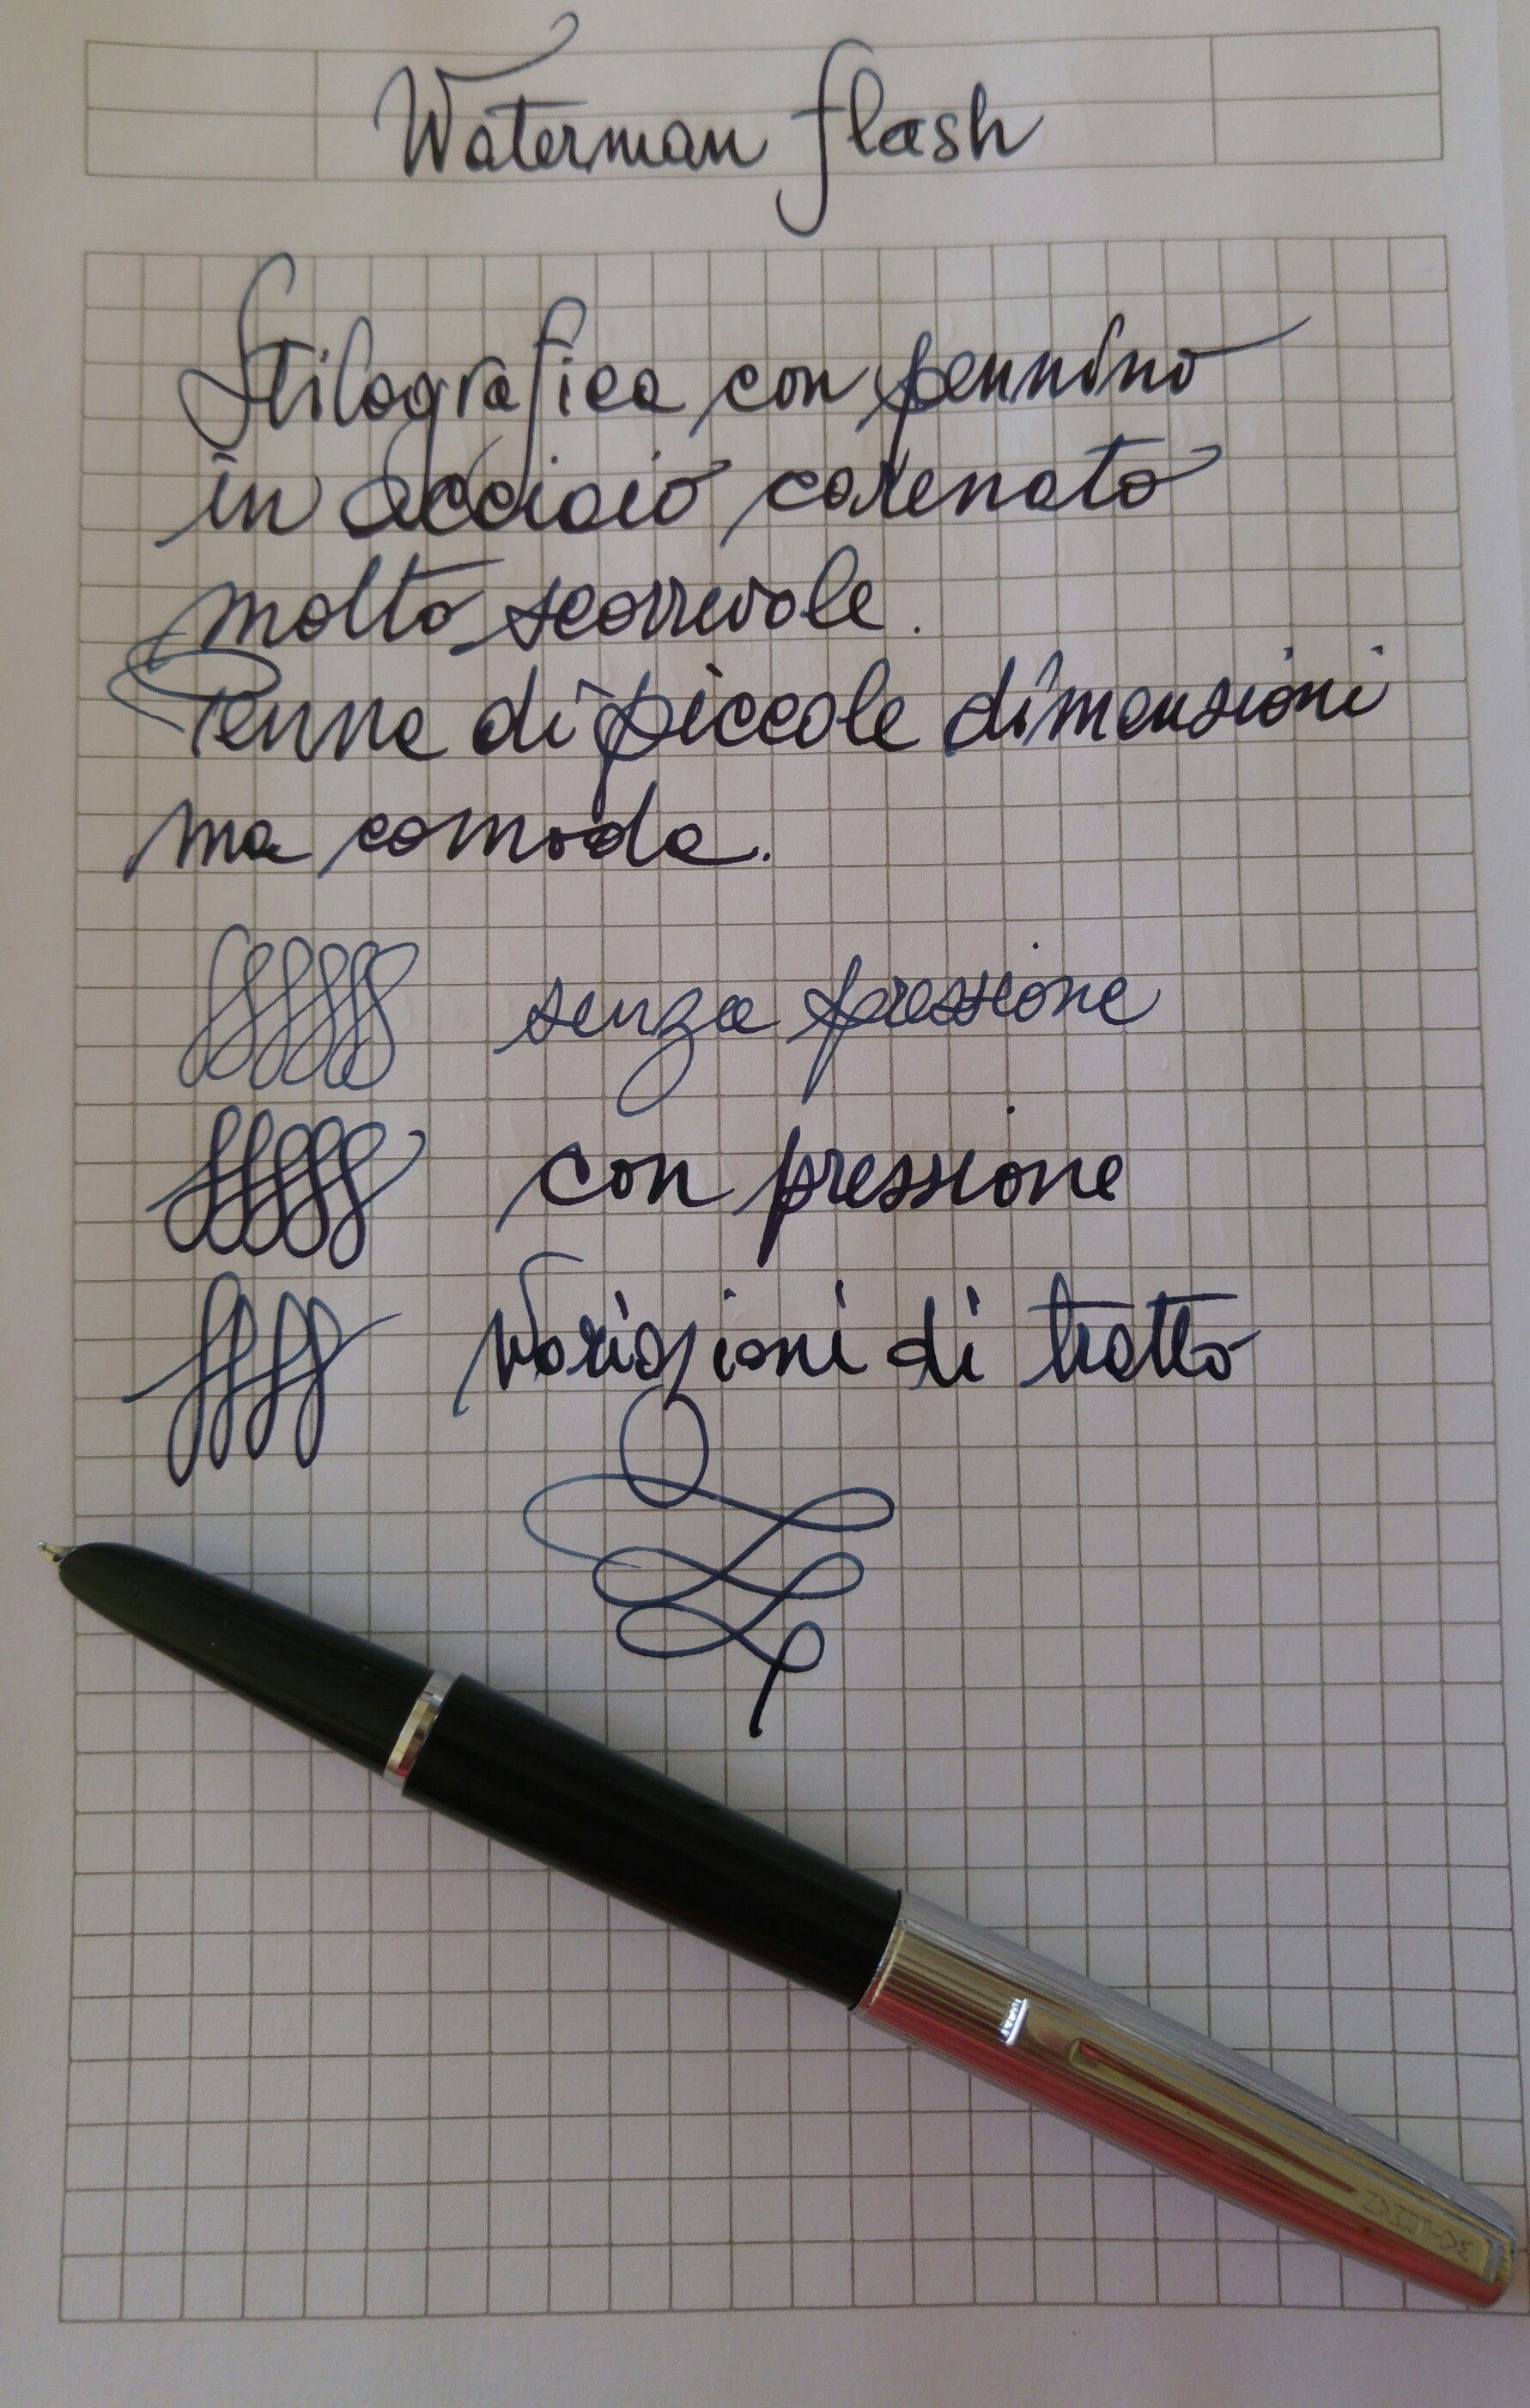 Waterman flash
Stilografica con pennino
in acciaio carenato
molto scorrevole.
Penna di piccole dimensioni
ma comoda.
senza pressione
con pressione
Variazioni di tratto